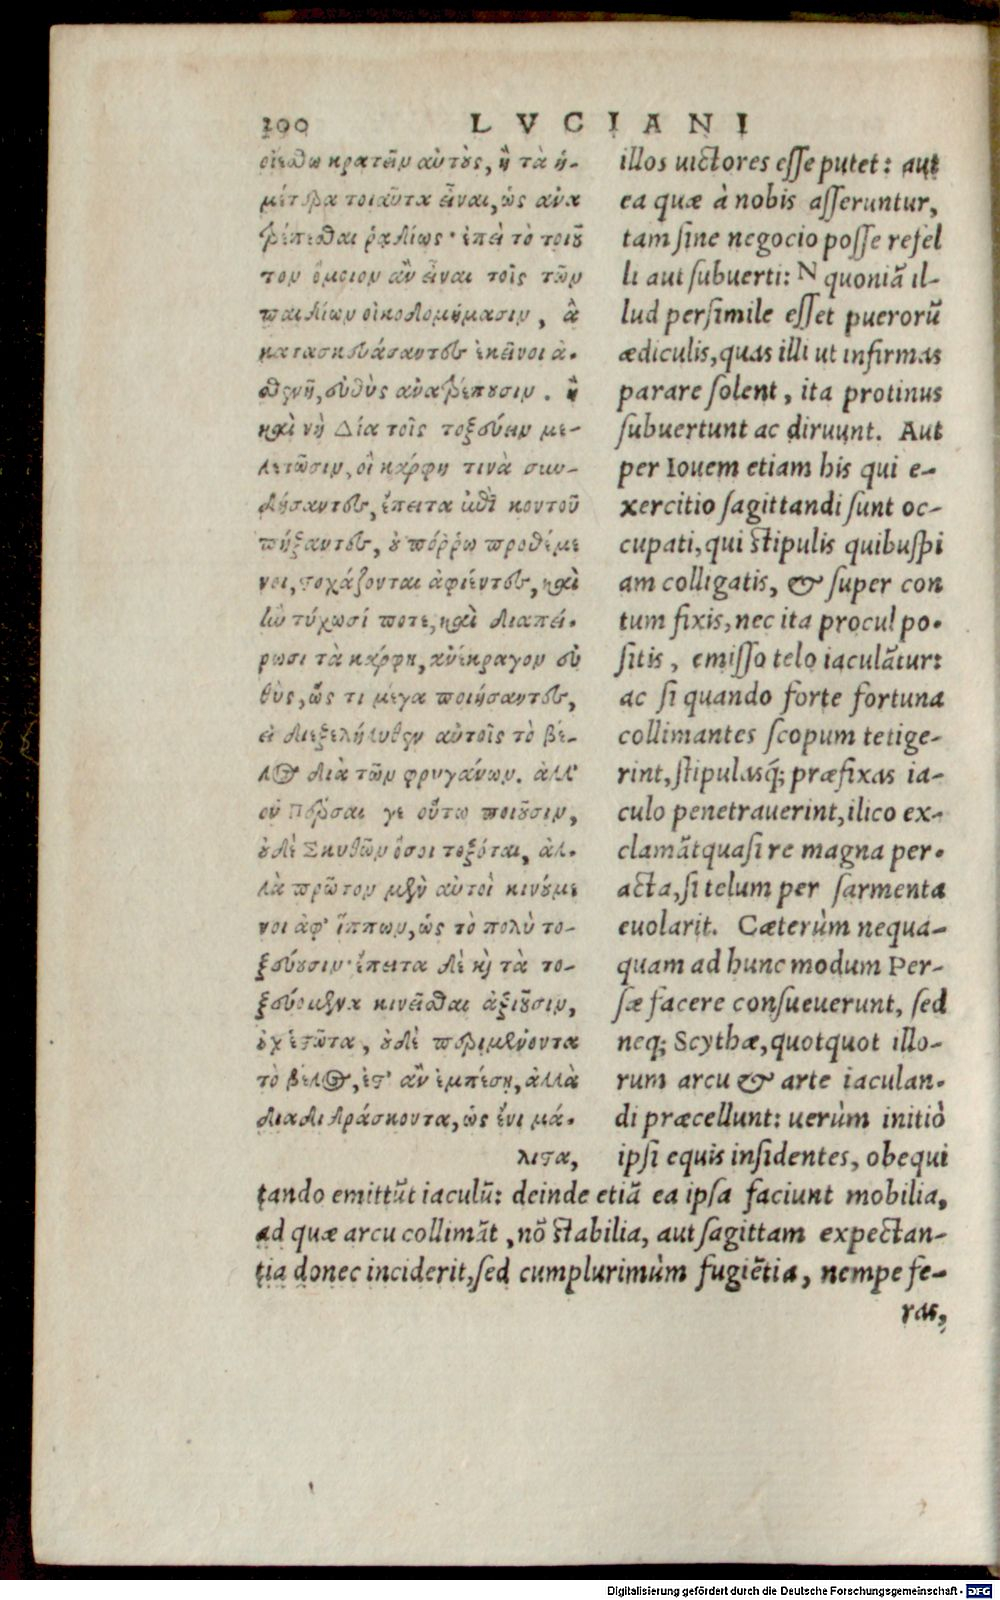 200 LVCIANI
οἰέσθω κρατεῖν αὐτοὺς, ἢ τὰ ἡ-
μέτερα τοιαῦτα εἶναι, ὡς ἀνα
τρέπεσθαι ῥαδίως· ἐπεὶ τὸ τοιοῦ
τον ὅμοιον ἂν εἶναι τοῖς τῶν
παιδίων οἰκοδομήμασιν, ἃ
κατασκευάσαντες ἐκεῖνοι ἀ-
σθενῆ, εὐθὺς ἀνατρέπουσιν. ἢ
καὶ νὴ Δία τοῖς τοξεύειν με-
λετῶσιν, οἳ κάρφη τινὰ συν-
δήσαντες, ἔπειτα ἐπὶ κοντοῦ
πήξαντες, οὐ πόῤῥω προθέμε
νοι, στοχάζονται ἀφιέντες, καὶ
ἢν τύχωσί ποτε, καὶ διαπεί-
ρωσι τὰ κάρφη, ἀνέκραγον εὐ
θὺς, ὥς τι μέγα ποιήσαντες,
εἰ διεξελήλυθεν αὐτοῖς τὸ βέ-
λος διὰ τῶν φρυγάνων. ἀλλ'
οὐ Πέρσαι γε οὕτω ποιοῦσιν,
οὐδὲ Σκυθῶν ὅσοι τοξόται, ἀλ-
λὰ πρῶτον μὲν αὐτοὶ κινούμε
νοι ἀφ' ἵππων, ὡς τὸ πολὺ το-
ξεύουσιν· ἔπειτα δὲ καὶ τὰ το-
ξευόμενα κινεῖσθαι ἀξιοῦσιν,
οὐχ ἑστῶτα, οὐδὲ περιμένοντα
τὸ βέλος, ἔστ' ἂν ἐμπέσῃ, ἀλλὰ
διαδιδράσκοντα, ὡς ἔνι μά-
λιστα,
illos uictores esse putet: aut
ea quæ à nobis asseruntur,
tam sine negocio posse refel
li aut subuerti: N quoniã il-
lud persimile esset puerorũ
ædiculis, quas illi ut infirmas
parare solent, ita protinus
subuertunt ac diruunt. Aut
per Iouem etiam his qui e-
xercitio sagittandi sunt oc-
cupati, qui stipulis quibuspi
am colligatis, & super con
tum fixis, nec ita procul po-
sitis, emisso telo iaculãtur:
ac si quando forte fortuna
collimantes scopum tetige-
rint, stipulasq; præfixas ia-
culo penetrauerint, ilico ex-
clamãt quasi re magna per-
acta, si telum per sarmenta
euolarit. Cæterùm nequa-
quam ad hunc modum Per-
sæ facere consueuerunt, sed
neq; Scythæ, quotquot illo-
rum arcu & arte iaculan-
di præcellunt: uerùm initiò
ipsi equis insidentes, obequi
tando emittũt iaculũ: deinde etiã ea ipsa faciunt mobilia,
ad quæ arcu collimãt, nõ stabilia, aut sagittam expectan-
tia donec inciderit, sed cumplurimùm fugiẽtia, nempe fe-
ras,
Digitalisierung gefördert durch die Deutsche Forschungsgemeinschaft - DFG